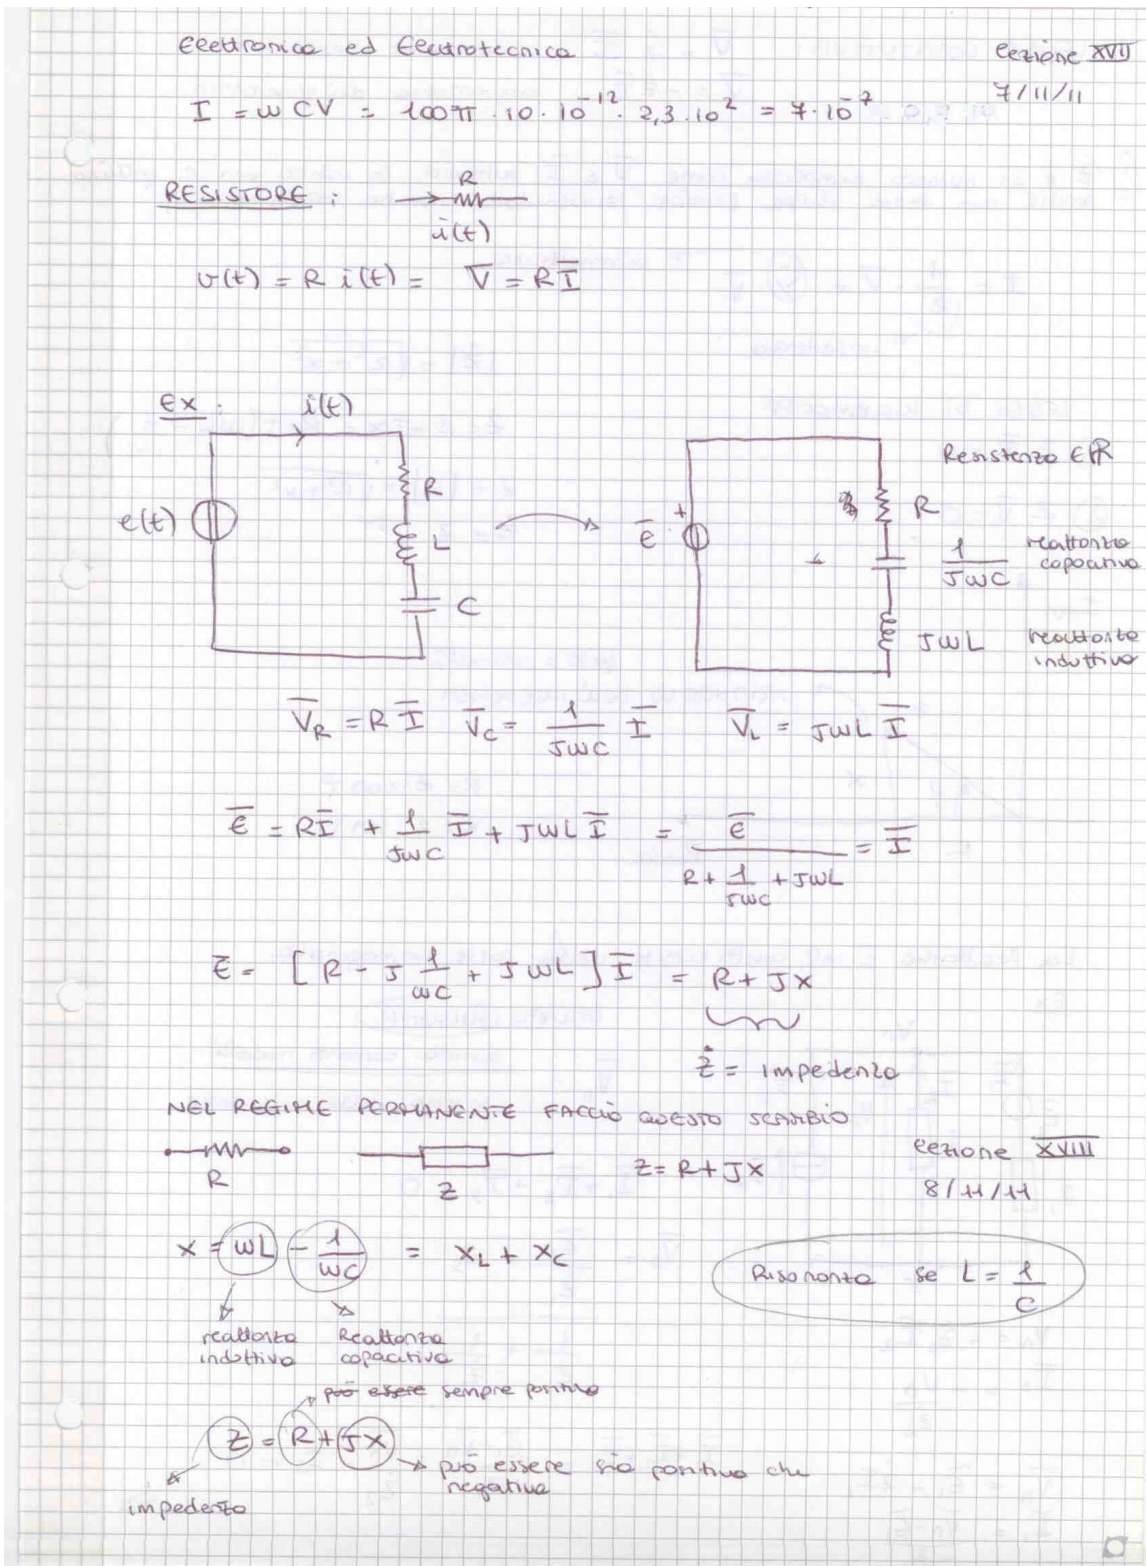 Elettronica ed Elettrotecnica
Lezione XVII
7/11/11
I = ωCV = 100π · 10 · 10⁻¹² · 2,3 · 10² = 7·10⁻⁷
RESISTORE :
R
i(t)
v(t) = R i(t) = V̅ = R I̅
EX :
i(t)
e(t)
R
L
C
E̅
+
Resistenza ∈ ℝ
R
1/JωC reattanza capacitiva
JωL reattanza induttiva
V̅_R = R I̅ V̅_C = 1/JωC I̅ V̅_L = JωL I̅
E̅ = R I̅ + 1/JωC I̅ + JωL I̅ = E̅ / (R + 1/JωC + JωL) = I̅
E̅ = [ R - J 1/ωC + JωL ] I̅ = R + JX
Ż = impedenza
NEL REGIME PERMANENTE FACCIO QUESTO SCAMBIO
R
Z
Z = R + JX
Lezione XVIII
8/11/11
X = ωL - 1/ωC = X_L + X_C
Risonanza se L = 1/C
reattanza induttiva
Reattanza capacitiva
può essere sempre positiva
Z = R + JX
può essere sia positiva che
negativa
impedenza